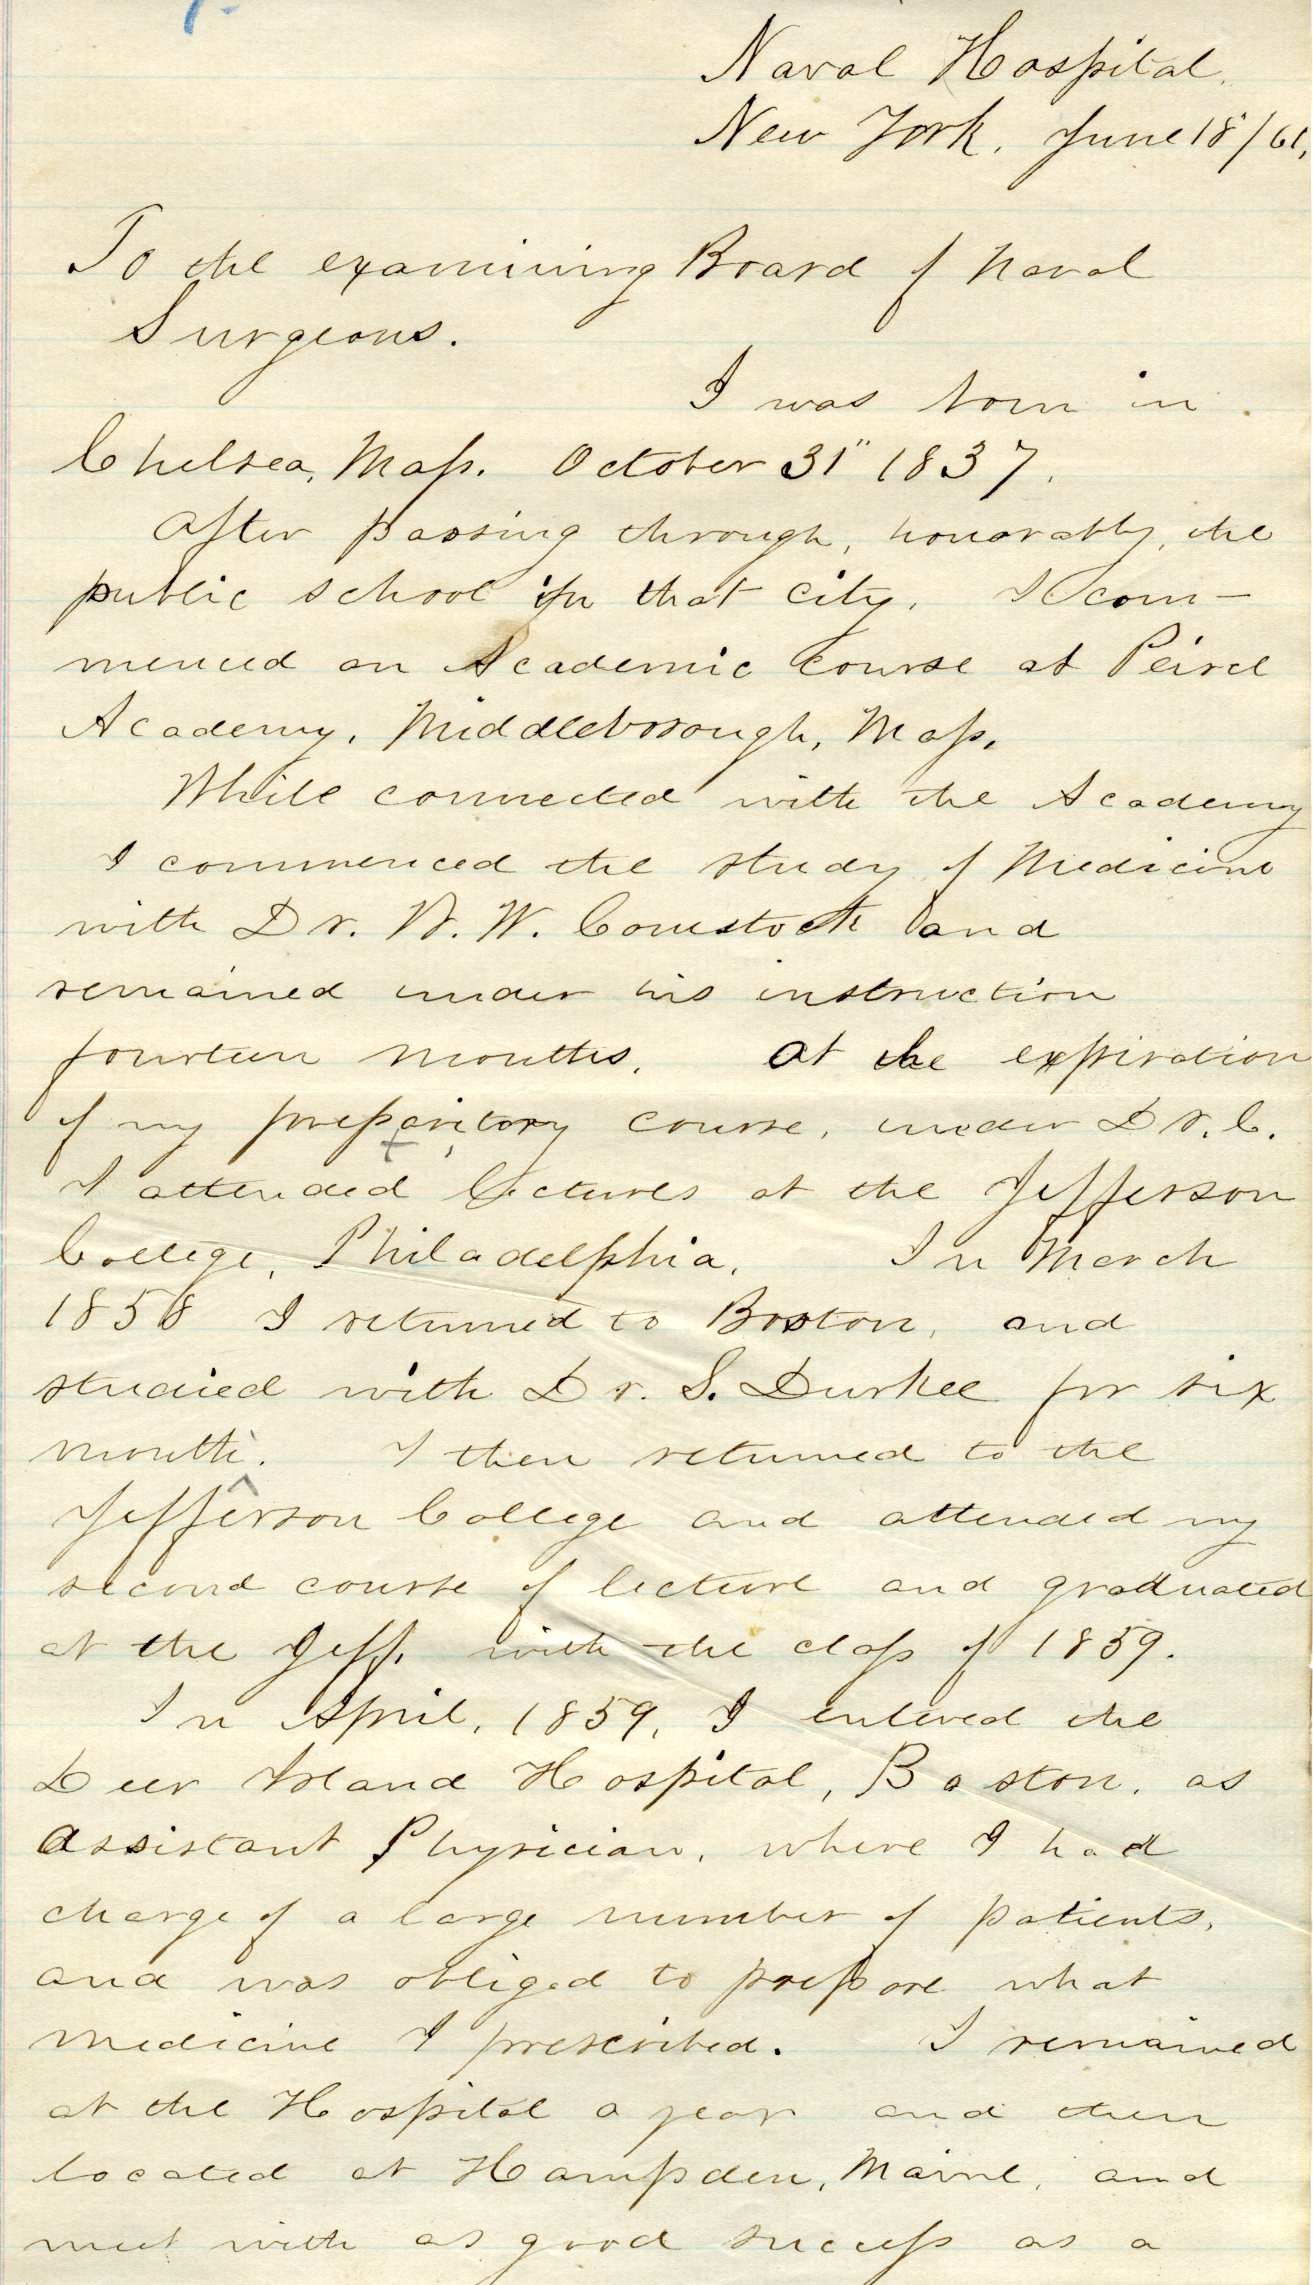 Naval Hospital.
New York. June 18/61,
To the examining Board of Naval
Surgeons.
I was born in
Chelsea, Mass. October 31" 1837.
After passing through, honorably, the
public school in that city. I com-
menced an Academic course at Peirce
Academy, Middleborough, Mass.
While connected with the Academy
I commenced the study of Medicine
with Dr. W. W. Comstock and
remained under his instruction
fourteen months. At the expiration
of my preparitory course, under Dr. C.
I attended lectures at the Jefferson
College, Philadelphia. In March
1858 I returned to Boston, and
studied with Dr. S. Durkee for six
months. I then returned to the
Jefferson College and attended my
second course of lecture and graduated
at the Jeff. with the class of 1859.
In April, 1859, I entered the
Deer Island Hospital, Boston, as
Assistant Physician, where I had
charge of a large number of patients,
and was obliged to prepare what
medicine I prescribed. I remained
at the Hospital a year and then
located at Hampden, Maine, and
met with as good success as a